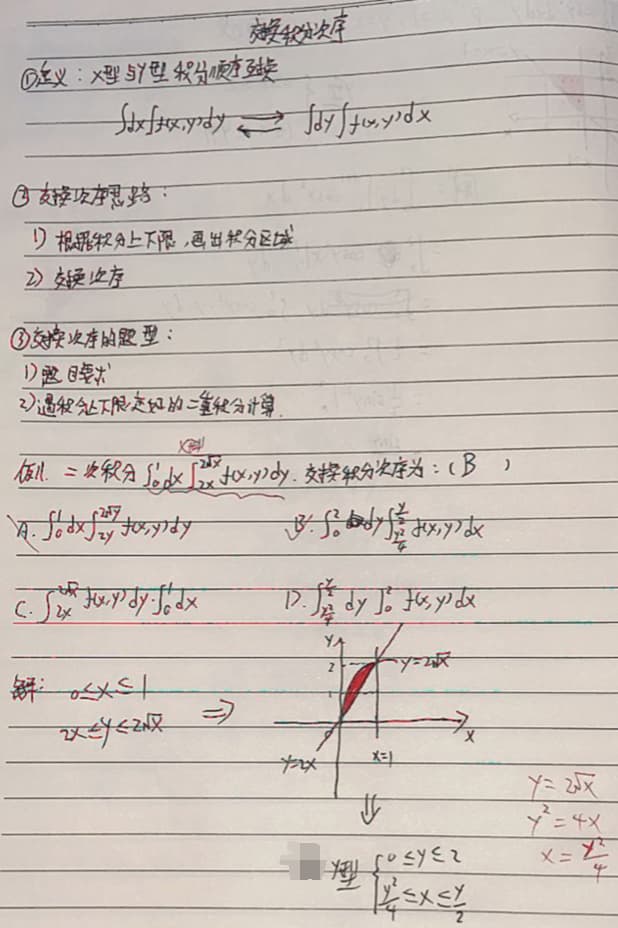 交换积分次序
①定义：X型与Y型积分顺序互换
∫dx∫f(x,y)dy ⇌ ∫dy∫f(x,y)dx
②交换次序思路：
1) 根据积分上下限，画出积分区域
2) 交换次序
③交换次序的题型：
1) 题目要求
2) 遇积分上下限定好的二重积分计算.
X型
例1. 二次积分 ∫₀¹dx∫_{2x}^{2√x} f(x,y)dy. 交换积分次序为：( B )
A. ∫₀¹dx∫_{2y}^{2√y} f(x,y)dy B. ∫₀² dy∫_{y²/4}^{y/2} f(x,y)dx
C. ∫_{2x}^{2√x} f(x,y)dy·∫₀¹dx D. ∫_{y²/4}^{y/2} dy ∫₀² f(x,y)dx
解： 0≤x≤1
2x≤y≤2√x ⇒
y
2
1
0
x
y=2√x
y=2x
x=1
⇓
y=2√x
y²=4x
x=y²/4
Y型 { 0≤y≤2
y²/4≤x≤y/2